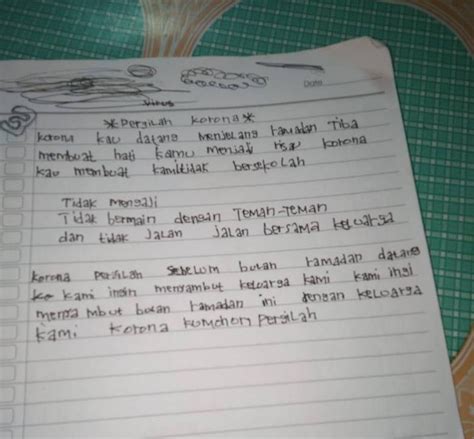 Date
Virus
*Pergilah korona*
korona kau datang menjelang ramadan Tiba
membuat hati kamu menjadi risau korona
kau membuat kamitidak bersekolah
Tidak mengaji
Tidak bermain dengan Teman-Teman
dan tidak Jalan Jalan bersama keluarga
korona pergilah sebelum bulan ramadan datang
kami ingin menyambut keluarga kami kami ingi
menya mbut bulan ramadan ini dengan keluarga
kami korona kumohon pergilah